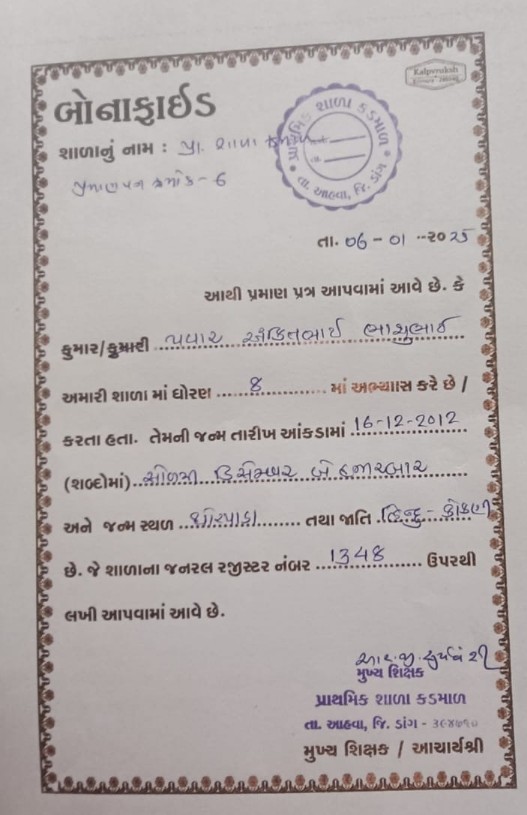 Kalpvruksh
બોનાફાઈડ
પ્રાથમિક શાળા કડમાળ
તા. આહવા, જિ. ડાંગ
શાળાનું નામ : પ્રા. શાળા
પ્રમાણપત્ર ક્રમાંક - 6
તા. 06 - 01 -૨૦ 25
આથી પ્રમાણ પ્રત્ર આપવામાં આવે છે. કે
કુમાર/કુમારી પવાર અંકિતભાઈ
અમારી શાળા માં ધોરણ 8 માં અભ્યાાસ કરે છે /
કરતા હતા. તેમની જન્મ તારીખ આંકડામાં 16-12-2012
(શબ્દોમાં) સોળમી ડિસેમ્બર બે હજાર બાર
અને જન્મ સ્થળ તથા જાતિ હિન્દુ - કોકણી
છે. જે શાળાના જનરલ રજીસ્ટર નંબર 1348 ઉપરથી
લખી આપવામાં આવે છે.
આર. જી. સુર્યવંશી
મુખ્ય શિક્ષક
પ્રાથમિક શાળા કડમાળ
તા. આહવા, જિ. ડાંગ - ૩૯૪૭૧૦
મુખ્ય શિક્ષક / આચાર્યશ્રી